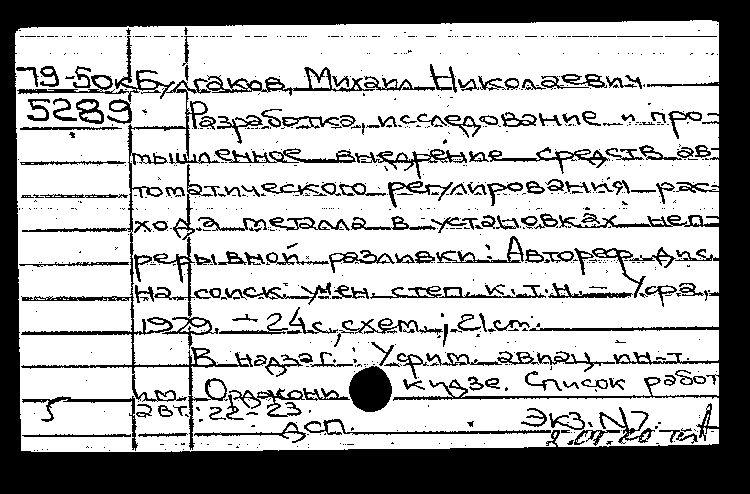 79-50к Булгаков, Михаил Николаевич
5289 Разработка, исследование и про-
мышленное внедрение средств ав-
томатического регулирования рас-
хода металла в установках неп-
рерывной разливки: Автореф. дис.
на соиск. учен. степ. к.т.н. – Уфа,
1979. – 24 с., схем.; 21 см.
В надзаг.: Уфим. авиац. ин-т.
им. Орджоникидзе. Список работ
5 авт.: 22-23.
ДСП. Экз. N 7.